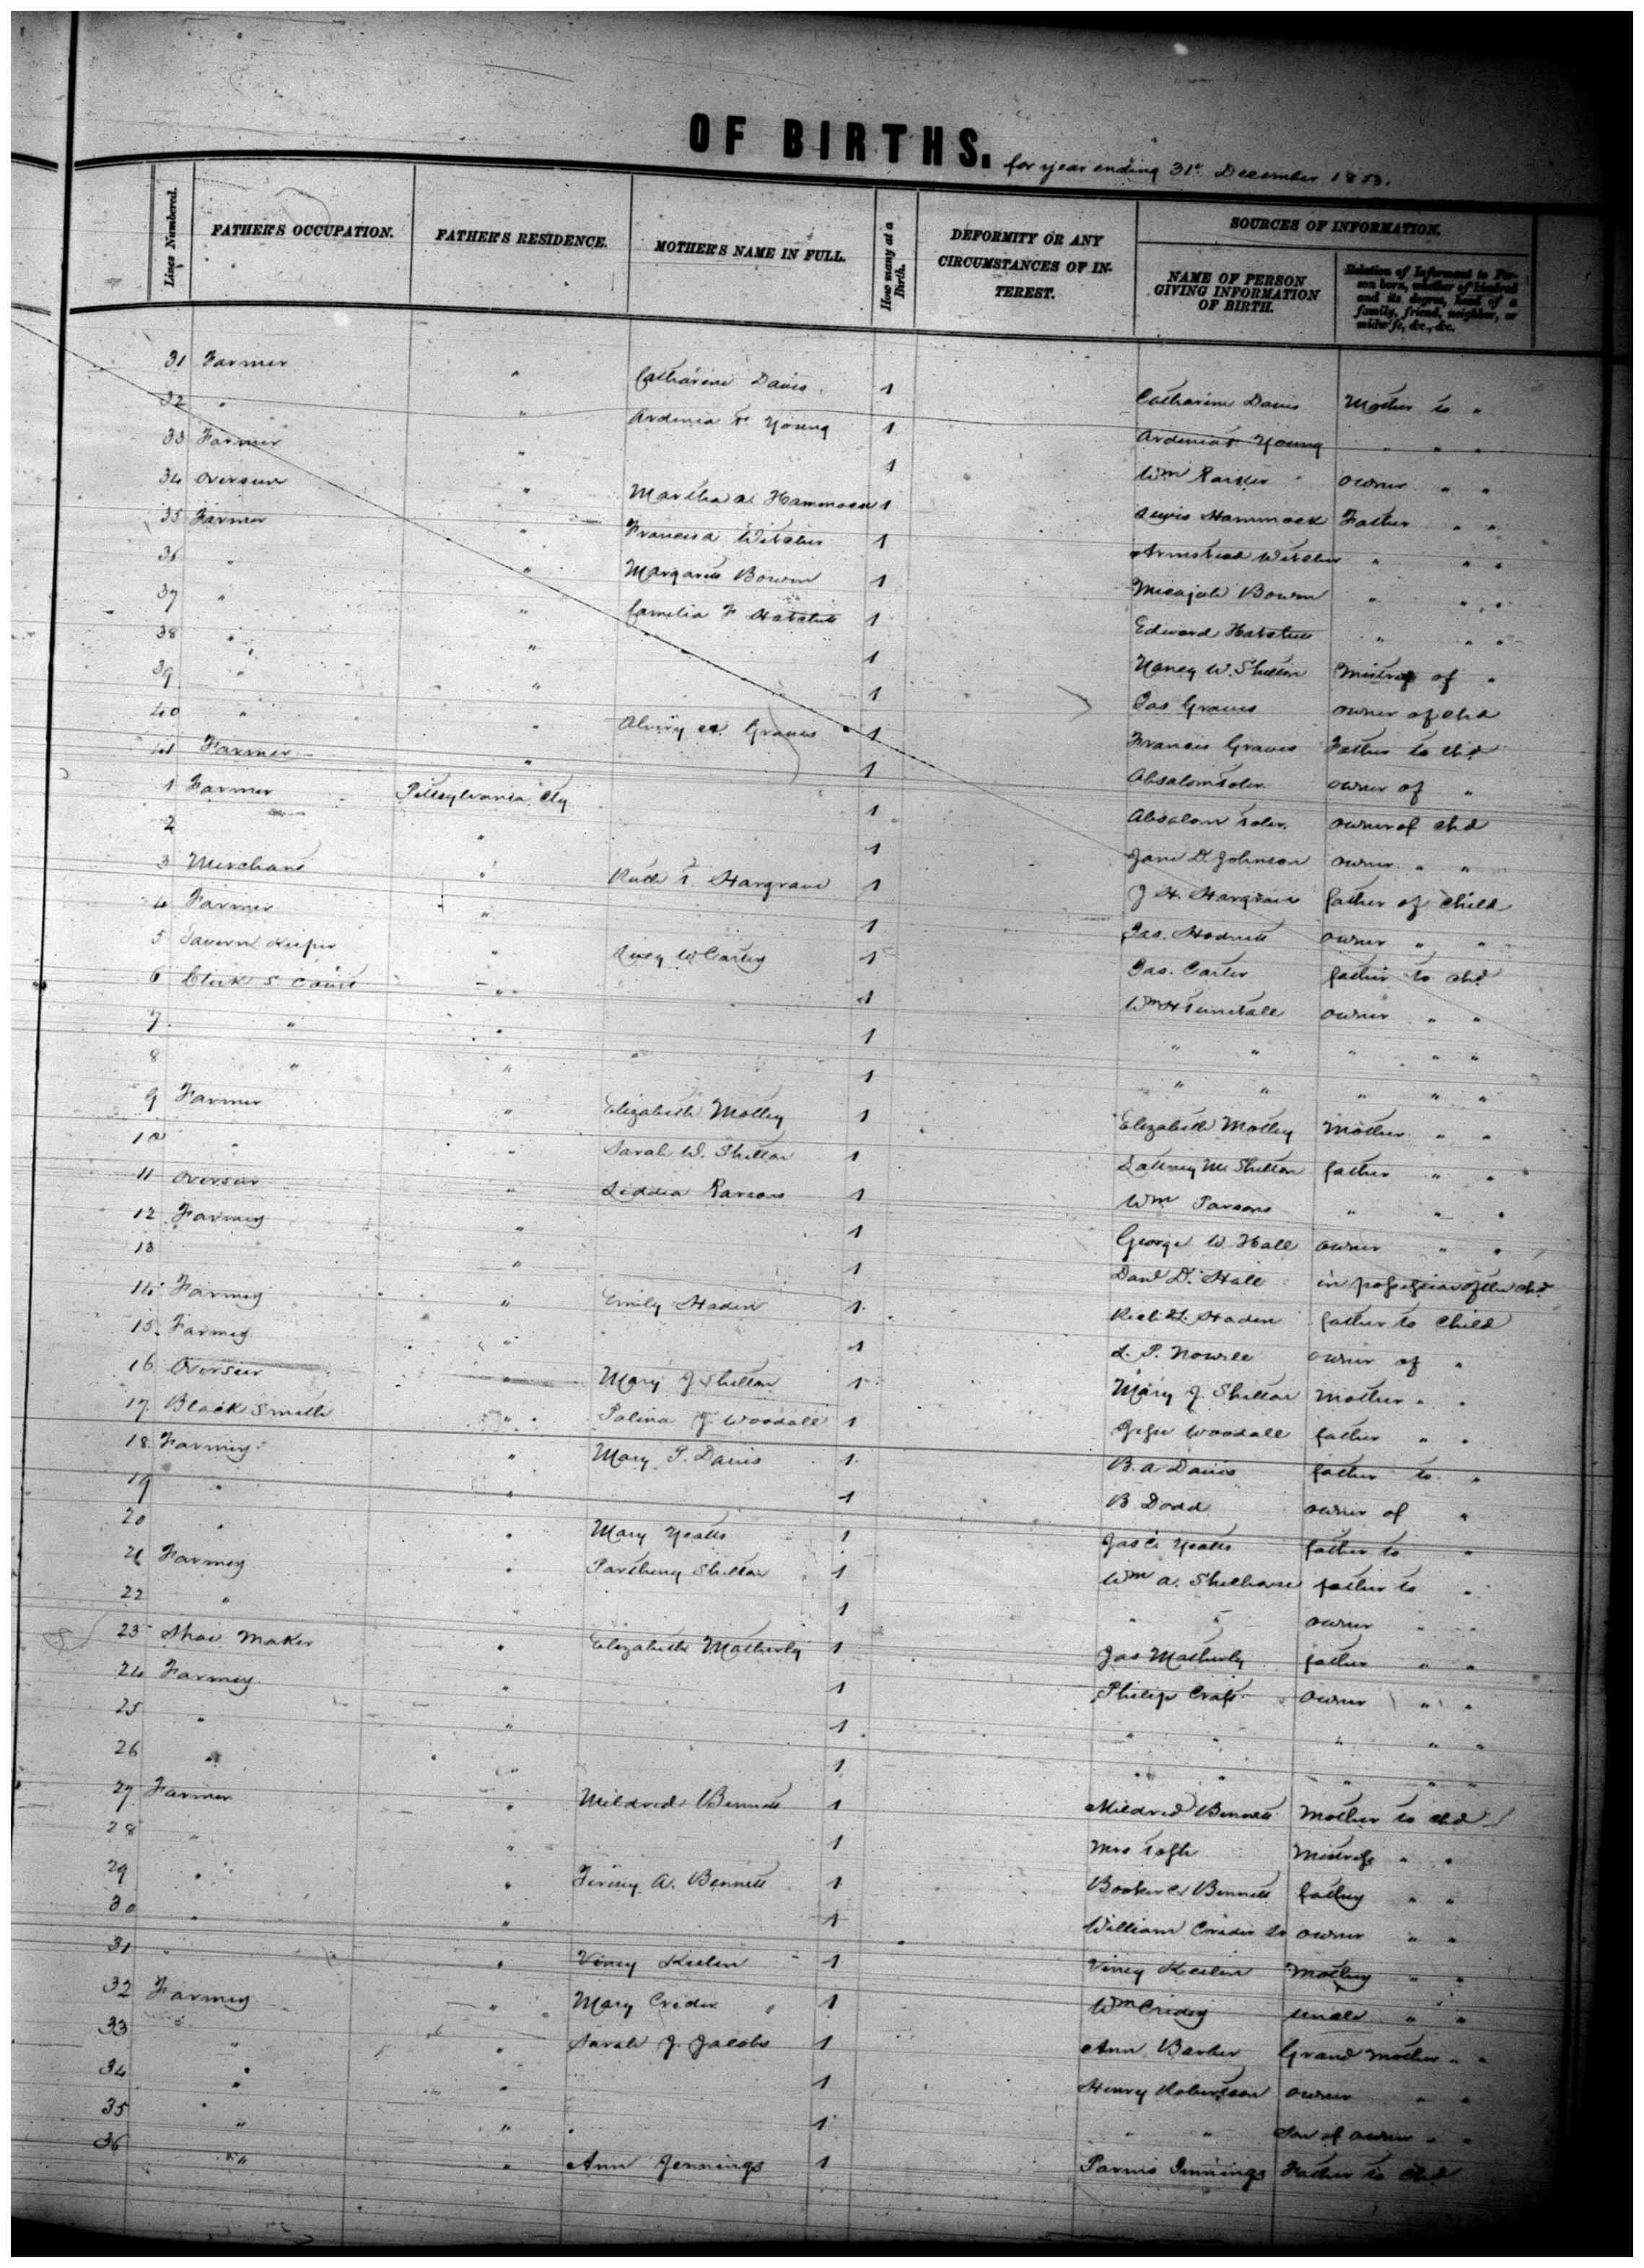 OF BIRTHS. for year ending 31st December 1853.
Lines Numbered. FATHER'S OCCUPATION. FATHER'S RESIDENCE. MOTHER'S NAME IN FULL. How many at a Birth. DEFORMITY OR ANY CIRCUMSTANCES OF INTEREST. SOURCES OF INFORMATION.
NAME OF PERSON GIVING INFORMATION OF BIRTH. Relation of Informant to Person born, whether of kindred and its degree, head of a family, friend, neighbor, or midwife, &c., &c.
31 Farmer " Catharine Davis 1 Catharine Davis Mother to "
32 " " Ardenia F Young 1 Ardenia F Young " " "
33 Farmer " 1 Wm owner " "
34 Overseer " Martha A. Hammock 1 Lewis Hammock Father " "
35 Farmer " Witcher 1 Armstead Witcher " " "
36 " " Margarett Bowen 1 Micajah Bowen " " "
37 " " Camelia F 1 Edward " " "
38 " " 1 Nancy W. Shelton Mistress of "
39 " " 1 Jas Graves owner of chd
40 " " Graves 1 Francis Graves Father to chd
41 Farmer " 1 Absalom Toler. owner of "
1 Farmer Pittsylvania Cty 1 Absalom Toler. owner of chd
2 " 1 Jane D. Johnson owner " "
3 Merchant " Ruth T. Hargrave 1 J H. Hargrave father of child
4 Farmer " 1 Jas. Hodnett owner " "
5 Tavern Keeper " Lucy W Carter 1 Jas. Carter father to chd
6 Clerk S Court " 1 Wm H Tunstall owner " "
7 " " 1 " " " " "
8 " " " 1 " " " " "
9 Farmer " Elizabeth Motley 1 Elizabeth Motley Mother " "
10 " " Sarah W. Shelton 1 M Shelton father " "
11 Overseer " Liddia Parsons 1 Wm Parsons " " "
12 Farmer " 1 George W. Hall owner " "
13 " 1 Danl D. Hall in possession of the chd
14 Farmer " Emily Haden 1 Haden father to child
15 Farmer " 1 L. P. Nowell owner of "
16 Overseer " Mary J Shelton 1 Mary J. Shelton Mother " "
17 Black Smith " Palina J. Woodall 1 Jesse Woodall father " "
18 Farmer " Mary P. Davis 1 B. A Davis father to "
19 " " 1 B Dodd owner of "
20 " " Mary Yeatts 1 Jas C Yeatts father to "
21 Farmer " Partheny Shelton 1 Wm A. father to "
22 " " 1 " " owner " "
23 Shoe Maker " Elizabeth Matherly 1 Jas Matherly father " "
24 Farmer " 1 Philip Craft owner " "
25 " " 1 " " " " "
26 " " 1 " " " " "
27 Farmer " Mildred Bennett 1 Mildred Bennett Mother to chd
28 " " 1 Mrs Mistress " "
29 " " A. Bennett 1 Booker C. Bennett father " "
30 " " 1 William Crider Sr owner " "
31 " " Viney Keelin 1 Viney Keelin Mother " "
32 Farmer " Mary Crider " 1 Wm Crider uncle " "
33 " " Sarah J. Jacobs 1 Ann Barber Grand Mother " "
34 " " 1 Henry Robertson owner " "
35 " " 1 " " Son of owner " "
36 " " Ann Jennings 1 Jennings Father to chd